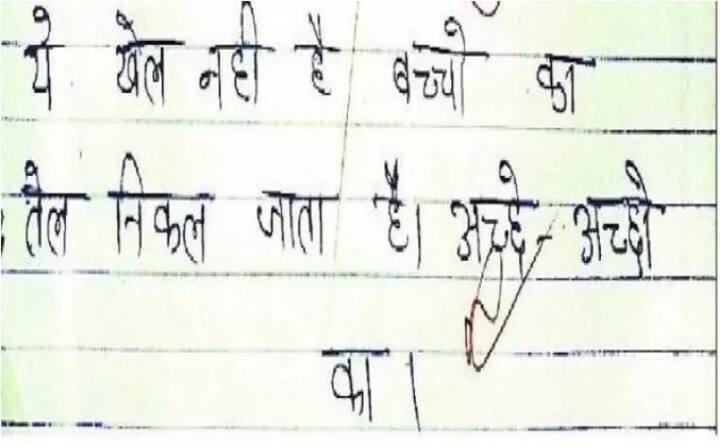 ये खेल नही है बच्चो का
तेल निकल जाता है। अच्छे - अच्छो
का।